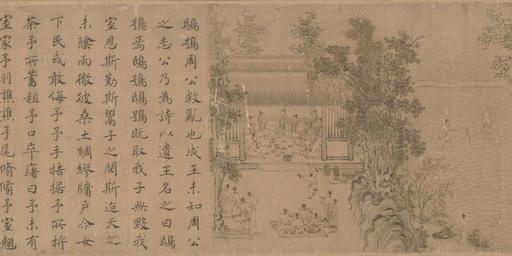 鴟鴞周公救亂也成王未知周公
之志公乃為詩以遺王名之曰鴟
鴞焉鴟鴞鴟鴞既取我子無毀我
室恩斯勤斯鬻子之閔斯迨天之
未陰雨徹彼桑土綢繆牖戶今女
下民或敢侮予予手拮据予所捋
荼予所蓄租予口卒瘏曰予未有
室家予羽譙譙予尾翛翛予室翹